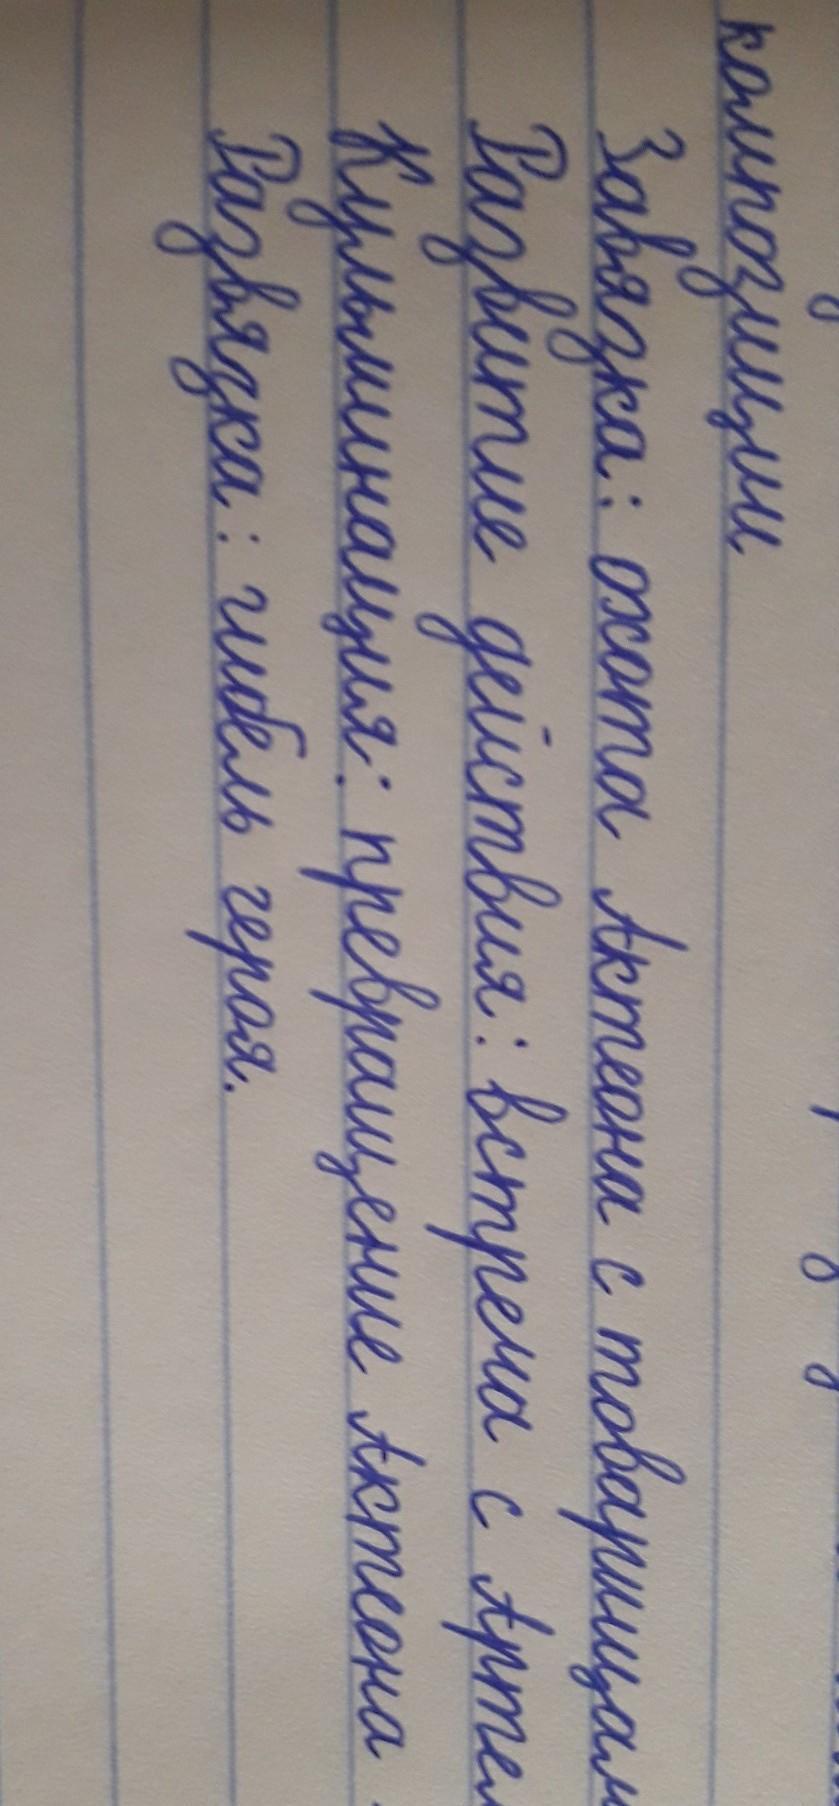 композиции
Завязка: охота Актеона с
Развитие действия: встреча с
Кульминация: превращение Актеона
Развязка: гибель героя.